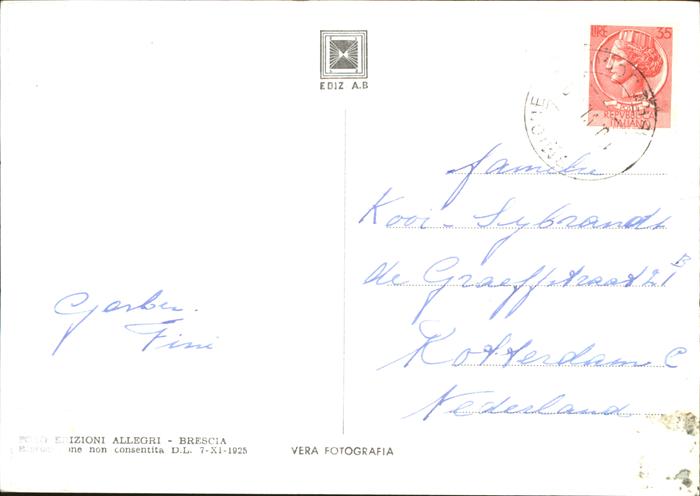 EDIZ A.B
LIRE 35
REPVBBLICA
ITALIANA
familie
Kooi-Sybrandt
de Graeffstraat 21 B
Rotterdam C
Nederland
Gerben.
Fini
FOTO EDIZIONI ALLEGRI - BRESCIA
non consentita D.L. 7-XI-1925
VERA FOTOGRAFIA